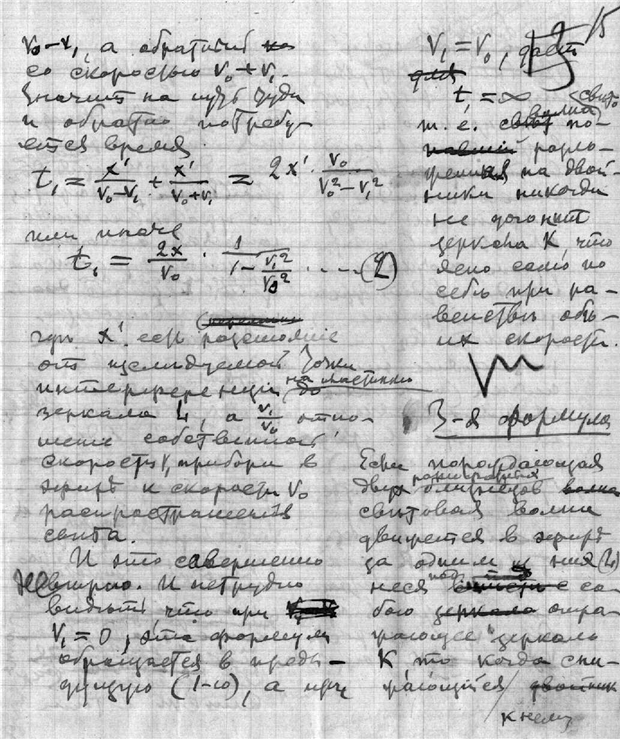 v₀–v₁, а обратный
со скоростью v₀ + v₁.
Значит на путь туда
и обратно потребу-
ется время
t₁ = x'/(v₀–v₁) + x'/(v₀+v₁) = 2x' · v₀/(v₀²–v₁²)
или иначе
t₁ = 2x/v₀ · 1/(1 – v₁²/v₀²) .... (2)
где x' есть расстояние
от исследуемой точки
интерференции на пластинки
зеркала, а v₁/v₀ отно-
шение собственной
скорости v₁ прибора в
эфире к скорости v₀
распространения
света.
И это совершенно
верно. И нетрудно
видеть что при
v₁ = 0, эта формула
обращается в преды-
дущую (1-ю), а при
15
V₁ = V₀, даст
t₁ = ∞
т. е. волна
на двой-
ники никогда
не догонит
зеркала К, что
ясно само по
себе при ра-
венстве обо-
их скорости.
3-я формула
Если порождающая
двух близнецов
световая волна
движется в эфире
за одним
неся с со-
бою отра-
жающее зеркало
К то когда
к нему